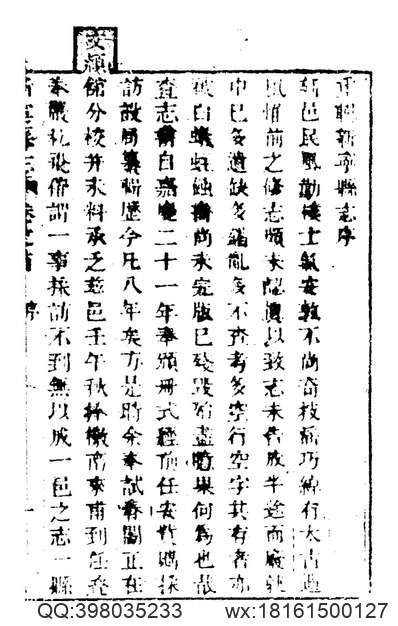 重刊新寧縣志序
新邑民風勤樸士氣安敦不尚奇技淫巧綽有太古遺
風惜前之修志頗未備以致志未告成半途而廢就
中已多遺缺多錯亂多不查考多空行空字其有者亦
被白蟻蛀蝕尚未完版已殘毀殆盡果何為也哉
查志自嘉慶二十一年奉頒冊式經前任安貲購採
訪設局纂輯歷今凡八年矣方是時余奉試春闈正在
文穎館分校并未料承乏茲邑壬午秋捧檄南來甫到任竟
未嚴札設備謂一事採訪不到無以成一邑之志一縣
新寧縣志 卷之首 序 一
QQ:398035233 wx:18161500127